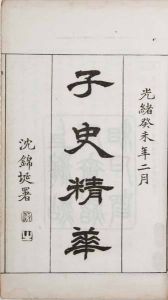 光緒癸未年二月
子史精華
沈錦垣署